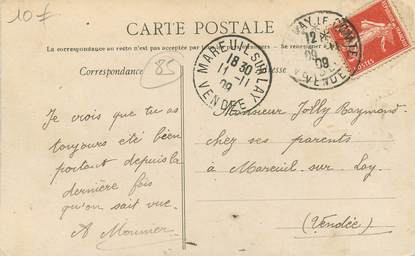 10 F
CARTE POSTALE
La correspondance au recto n'est pas acceptée par
Se renseigner
Correspondance
Adresse
85
MAREUIL-SUR-LAY
18 30
11 -11
09
VENDÉE
12
09
VENDÉE
POSTES
Je crois que tu as
toujours été bien
portant depuis la
dernière fois
qu'on s'ait vue.
A Mounier
Monsieur Jolly Raymond
chez ses parents
à Mareuil-sur-Lay
(Vendée)